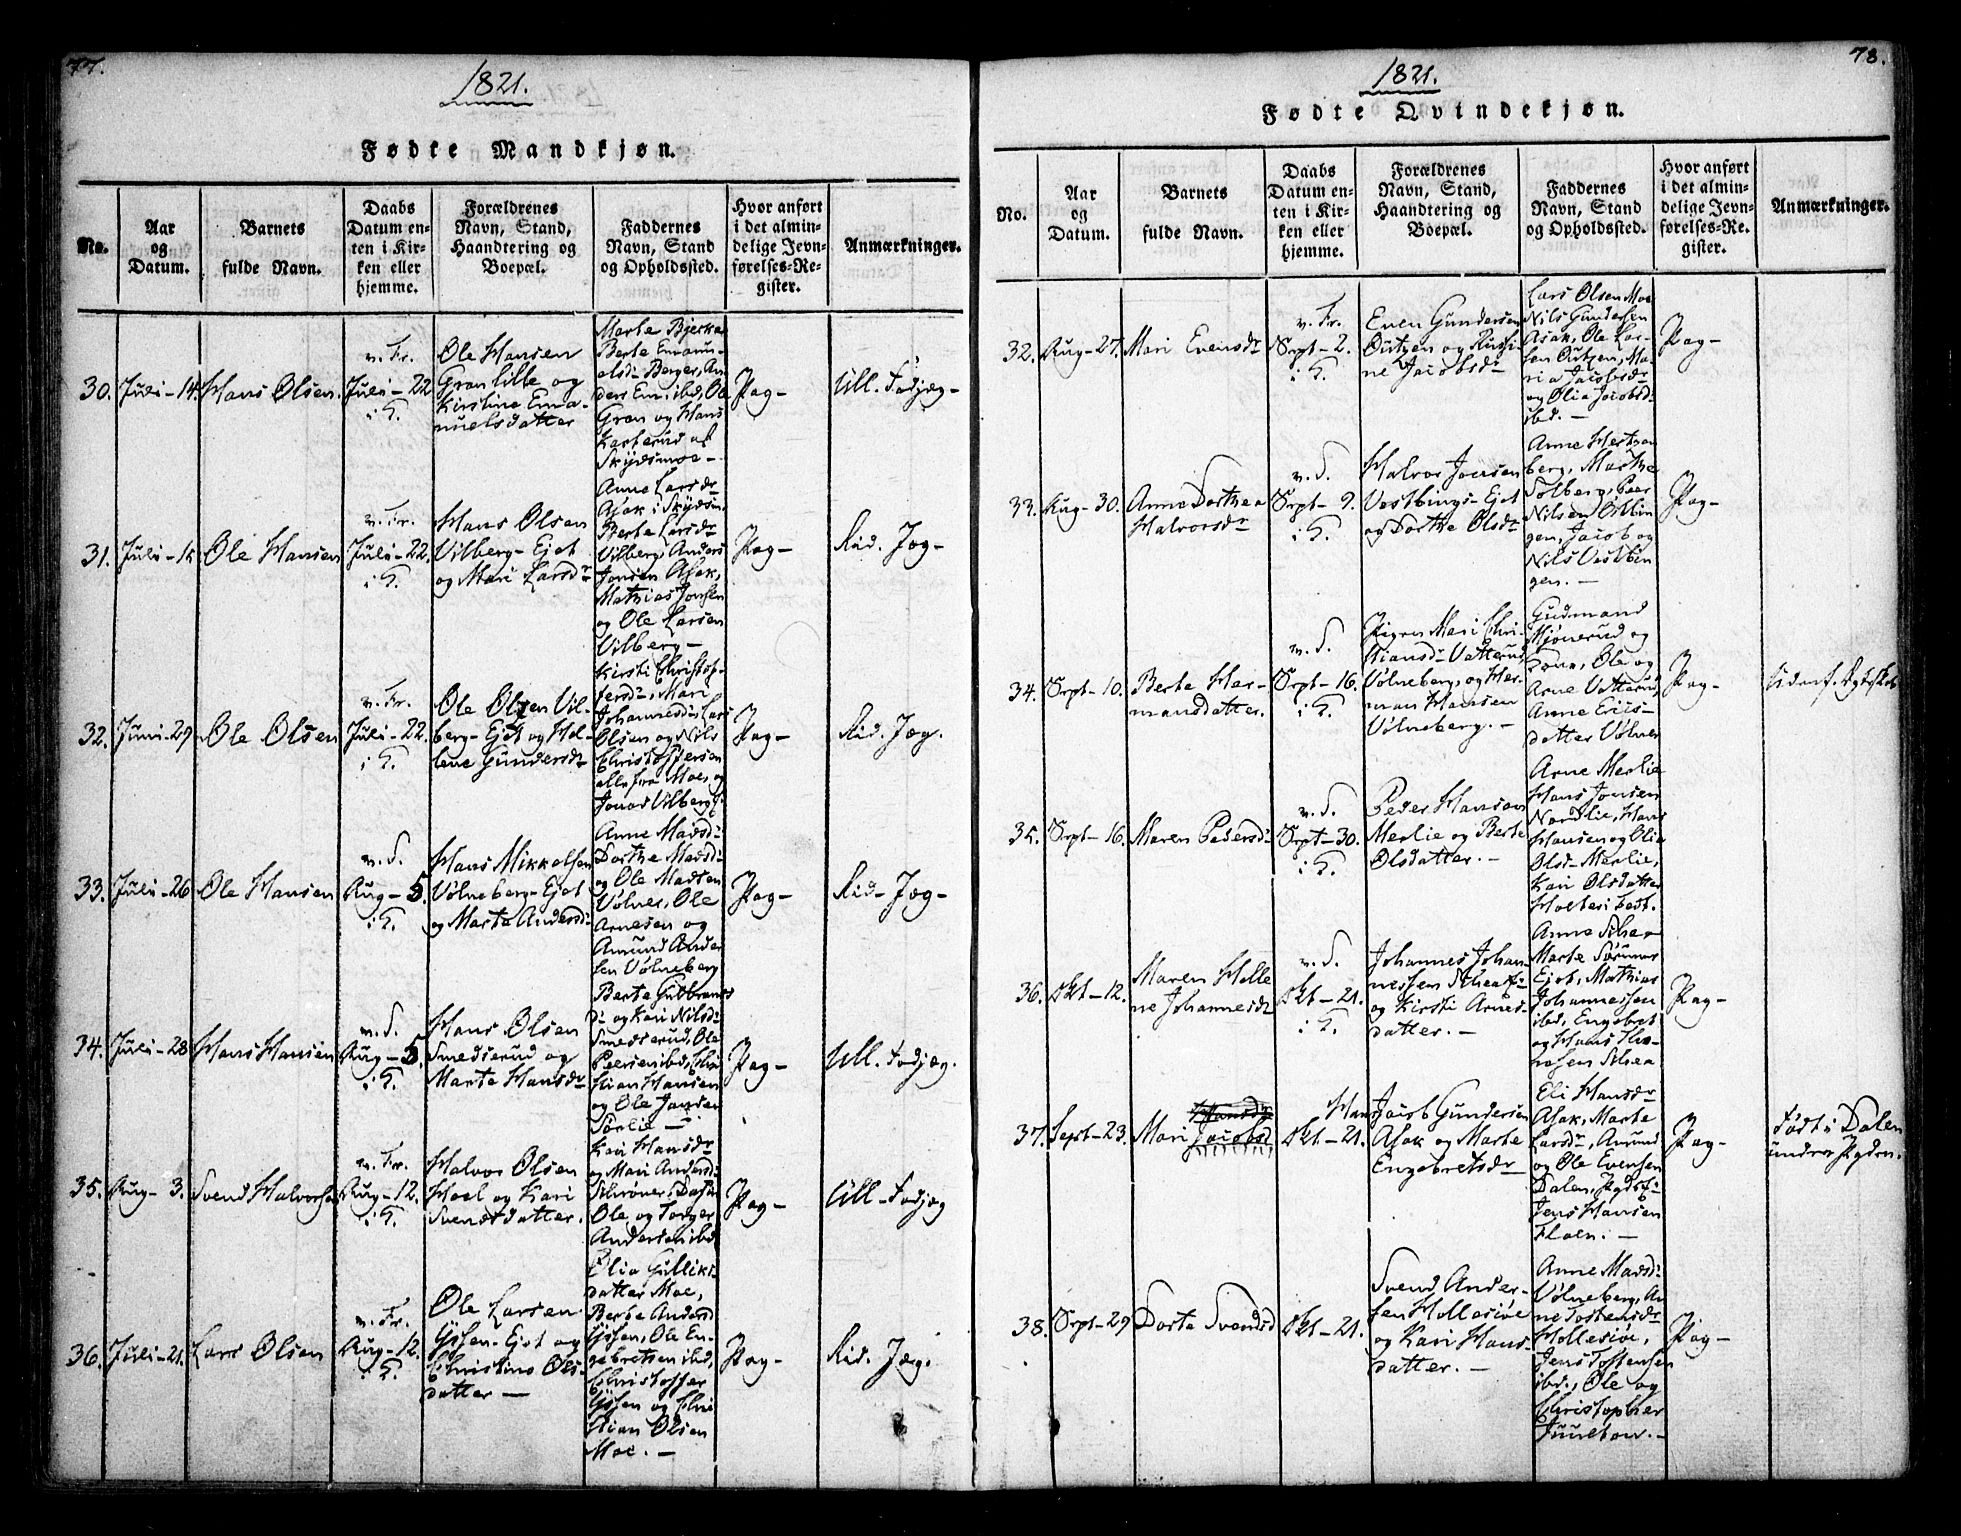 77.
1821.
Fødte Mandkjøn.
No.
Aar
og
Datum.
Barnets
fulde Navn.
Daabs
Datum en-
ten i Kir-
ken eller
hjemme.
Forældrenes
Navn, Stand,
Haandtering og
Boepæl.
Faddernes
Navn, Stand
og Opholdssted.
Hvor anført
i det almin-
delige Jevn-
førelses-Re-
gister.
Anmærkninger.
30.
Juli - 14.
Hans Olsen.
v. Fr.
Juli - 22
i K.
Ole Hansen
Gran lille og
Kirstine Ema-
nuelsdatter
Marte Bjerka
Berte Emanu-
elsdr Berger, An-
ders Em. ibd, Ole
Gran og Hans
Karterud af
Skydsmoe -
Pag -
Ull. Fodjæg -
31.
Juli -
Ole Hansen
v. Fr.
Juli - 22.
i K.
Hans Olsen
Vilberg - Ejet
og Mari Larsdr
Anne Larsdr
Asak i Skydsm.
Berte Larsdr
Vilberg, Anders
Jonsen Asak,
Mathias Jonsen
og Ole Larsen
Vilberg -
Pag -
Rid. Jæg -
32.
Juni - 29
Ole Olsen
v. Fr.
Juli - 22.
i K.
Ole Olsen Vil-
berg - Ejet og Hel-
lene Gundersdr
Kirsti Christof-
fersdr, Mari
Johannesdr, Lars
Olsen og Nils
Christoffersen
alle fra Moe, og
Jonas Vilberg
Pag -
Rid. Jæg.
33.
Juli - 26
Ole Hansen
v. S.
Aug - 5.
i K.
Hans Mikkelsen
Vølneberg - Ejet
og Marte Andersdr
Anne Madsdr
Dorthe Madsdr
og Ole Madsen
Vølner, Ole
Arnesen og
Amund Ander
sen Vølneberg
Pag -
Rid - Jæg -
34.
Juli - 28
Hans Hansen
v. S.
Aug - 5.
i K.
Hans Olsen
Smedserud og
Marte Hansdr
Berte Gulbrands
dr og Kari Nilsdr
Smedserud, Ole
Peersen ibd, Chri
stian Hansen
og Ole Jonsen
Sørlie -
Pag -
Ull. Fodjæg.
35.
Aug - 3.
Svend Halvorsen
v. Fr.
Aug - 12.
i K.
Halvor Olsen
Hoel og Kari
Svendsdatter.
Kari Hansdr
og Mari Andersdr
Ole og Torger
Andersen ibd
Pag -
Ull - Fodjæg
36.
Juli - 21.
Lars Olsen
v. Fr.
Aug - 12.
i K.
Ole Larsen
Yssen - Ejet og
Christine Ols-
datter -
Olia Gulliks-
datter Moe,
Berte Andersd
Yssen, Ole En-
gebretsen ibd,
Christoffer
Yssen og Chri
stian Olsen
Moe. -
Pag -
Rid. Jæg.
78.
1821.
Fødte Qvindekjøn.
No.
Aar
og
Datum.
Barnets
fulde Navn.
Daabs
Datum en-
ten i Kir-
ken eller
hjemme.
Forældrenes
Navn, Stand,
Haandtering og
Boepæl.
Faddernes
Navn, Stand
og Opholdssted.
Hvor anført
i det almin-
delige Jevn-
førelses-Re-
gister.
Anmærkninger.
32.
Aug - 27.
Mari Evensdr
v. Fr.
Sept - 2.
i K.
Even Gundersen
Outzen og
ne Jacobsdr
Lars Olsen Moe
Nils Gundersen
Asak, Ole Lar-
sen Outzen, Ma-
ria Jacobsdr
og Olia Jacobsd
ibd. -
Pag -
33.
Aug - 30.
Anne Dorthea
Halvorsdr
v. S.
Sept - 9.
i K.
Halvor Jonsen
Vestbings - Ejet
og Dorthe Olsdr
Anne Hertzen
berg, Marthe
Solberg, Peer
Nilsen
gen, Jacob og
Nils Vestbin
gen. -
Pag -
34.
Sept - 10.
Berte Her-
mansdatter.
v. S.
Sept - 16.
i K.
Pigen Mari Chri-
stiansdr Vatterud,
Vølneberg, og Her-
man Hansen
Vølneberg. -
Gudmand
Mjønerud og
Ole og
Arne Vatterud,
Anne Erics-
datter Vølner
Pag -
35.
Sept - 16.
Maren Pedersdr
v. S.
Sept - 30.
i K.
Peder Hansen
Merlie og Berte
Olsdatter. -
Arne Merlie
Hans Jonsen
Nordlie, Hans
Hansen og Olia
Olsd Merlie,
Kari Olsdatter
Holter i best.
Pag -
36.
Okt - 12.
Maren Helle
ne Johannesdr
v. S.
Okt - 21.
i K.
Johannes Johan
nessen
og Kirsti Arnes-
datter. -
Anne
Marte Sørumsr
Ejet, Mathias
Johannessen
ibd, Engebret
og Hans
Pag -
37.
Sept - 23.
Mari Jacobsd
Okt - 21.
Hans Jacob Gundersen
Asak og Marte
Engebretsdr
Eli Hansdr
Asak, Marte
Larsdr, Amund
og Ole Evensen
Dalen,
Jens Hansen
Floen. -
Pag -
Født i Dalen
under Pgden.
38.
Sept - 29
Dorte Svendsd
Okt - 21.
Svend Ander-
sen Hollesiøe
og Kari Hans-
datter. -
Anne Madsdr
Vølneberg, An
ne Tostensdr
Hollesiøe,
Jens Tostensen
ibd., Ole og
Christopher
Juuelton. -
Pag -